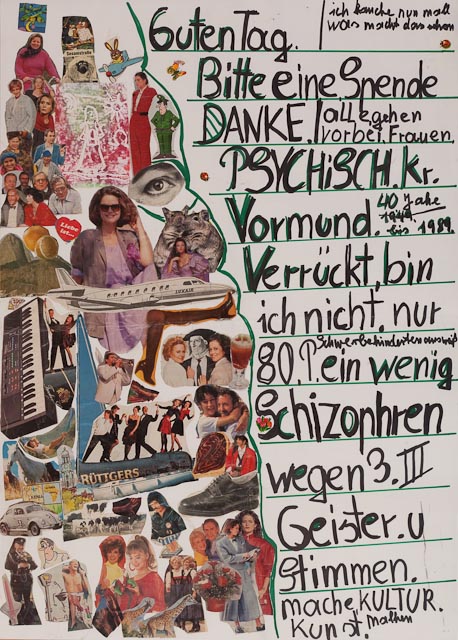 ich kauche nun mall
was macht das schon
Guten Tag.
Bitte eine Spende
DANKE. alle gehen
vorbei. Frauen.
PSYCHiSCH. Kr.
Vormund. 40 Jahre
bis 1989.
Verrückt, bin
ich nicht. nur
Schwerbehindertenausweis
80. P. ein wenig
Schizophren
wegen 3. III
Geister. u
Stimmen.
mache KULTUR.
Kunst Mathen
Sesamstraße
Liebe
ist...
LUXAIR
RÜTTGERS